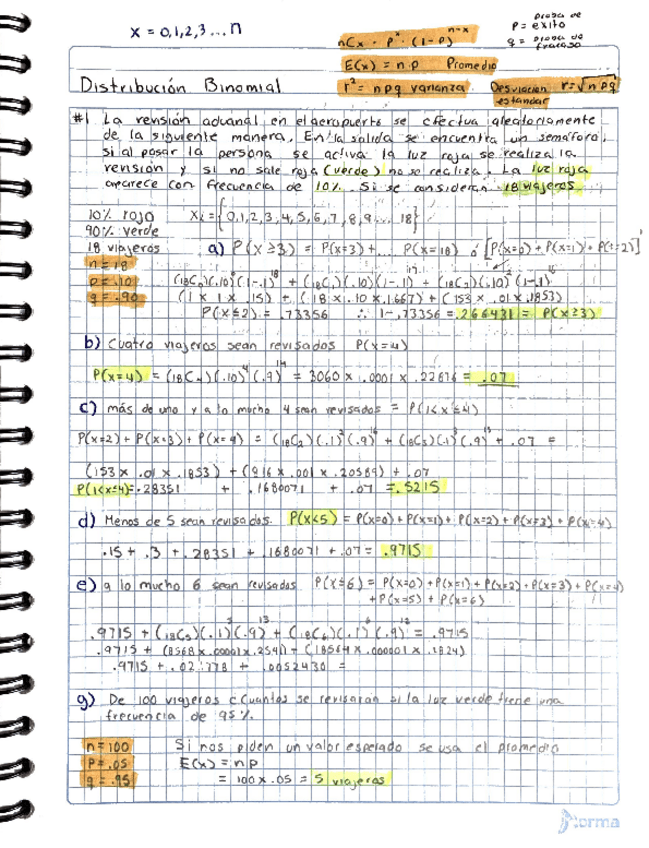 X = 0,1,2,3...n
nCx · p^x · (1-p)^n-x
P = exito
q = fracaso
E(x) = n.p Promedio
Distribución Binomial
r² = npq varianza
Desviacion estandar r=√npq
#1 La revisión aduanal en el aeropuerto se efectua aleatoriamente
de la siguiente manera, En la salida se encuentra un semáforo,
si al pasar la persona se activa la luz roja se realiza la
revisión y si no sale roja (verde) no se realiza. La luz roja
aparece con frecuencia de 10%. Si se consideran 18 viajeros
10% rojo Xi = {0,1,2,3,4,5,6,7,8,9... 18}
90% verde
18 viajeros a) P(x≥3) = P(x=3)+... P(x=18) ó [P(x=0)+P(x=1)+P(x=2)]
n = 18
p = .10
q = .90 (1 x 1 x .15) + (18 x .10 x .1667) + (153 x .01 x .1853)
P(x≤2) = .73356 ∴ 1-.73356 = .266431 = P(x≥3)
b) Cuatro viajeros sean revisados P(x=4)
P(x=4) = (18C4)(.10)^4(.9)^14 = 3060 x .0001 x .22876 = .07
c) más de uno y a lo mucho 4 sean revisados = P(1<x≤4)
P(x=2) + P(x=3) + P(x=4) = (18C2)(.1)²(.9)^16 + (18C3)(.1)³(.9)^15 + .07 =
(153 x .01 x .1853) + (816 x .001 x .20589) + .07
P(1<x≤4)=.28351 + .1680071 + .07 = .5215
d) Menos de 5 sean revisados. P(x<5) = P(x=0)+P(x=1)+P(x=2)+P(x=3)+P(x=4)
.15 + .3 + .28351 + .1680071 + .07 = .9715
e) a lo mucho 6 sean revisados P(x≤6) = P(x=0)+P(x=1)+P(x=2)+P(x=3)+P(x=4)
+P(x=5) + P(x=6)
.9715 + (18C5)(.1)^5(.9)^13 + (18C6)(.1)^6(.9)^12 = .9715
.9715 + (8568 x .00001 x .2541) + (18564 x .000001 x .2824)
.9715 + .021778 + .0052430 =
g) De 100 viajeros cCuantos se revisarán si la luz verde tiene una
frecuencia de 95%.
n = 100 Si nos piden un valor esperado se usa el promedio
P = .05 E(x) = np
q = .95 = 100 x .05 = 5 viajeros
Norma